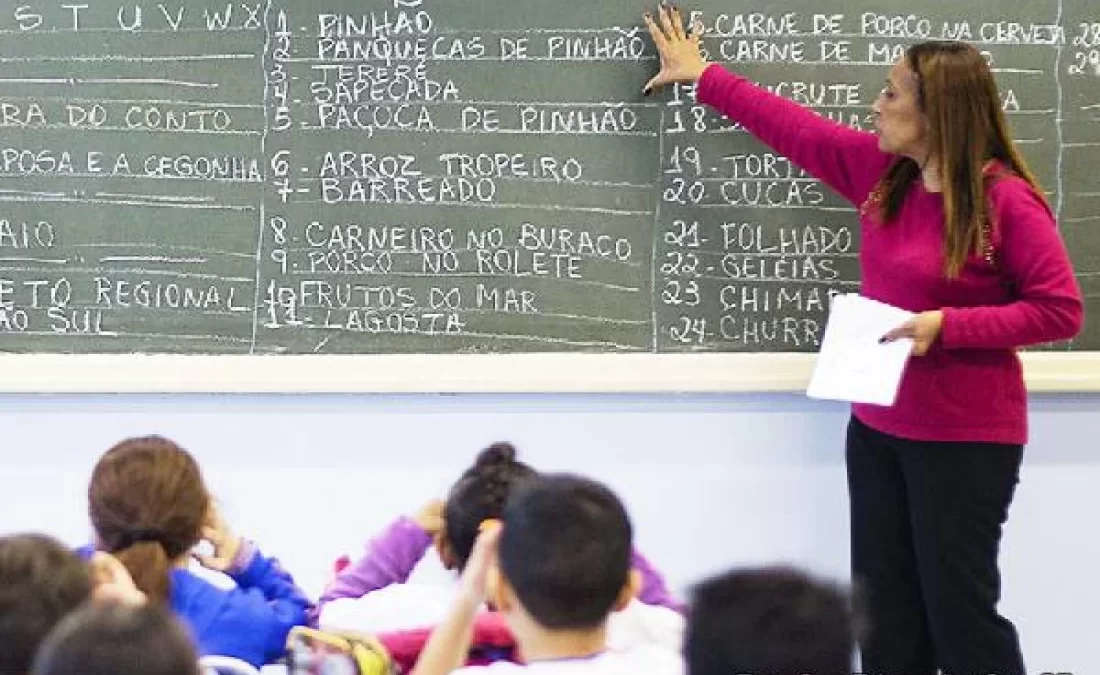 S T U V W X
RA DO CONTO
POSA E A CEGONHA
AIO
ETO REGIONAL
ÃO SUL
1 - PINHÃO
2 - PANQUECAS DE PINHÃO
3 - TERERÊ
4 - SAPECADA
5 - PAÇOCA DE PINHÃO
6 - ARROZ TROPEIRO
7 - BARREADO
8 - CARNEIRO NO BURACO
9 - PORCO NO ROLETE
10 - FRUTOS DO MAR
11 - LAGOSTA
5 - CARNE DE PORCO NA CERVEJA
6 CARNE DE
17 CRUTE
18 -
19 - TORT
20 CUCAS
21 - FOLHADO
22 - GELÉIAS
23 CHIMA
24 - CHURR
28
29